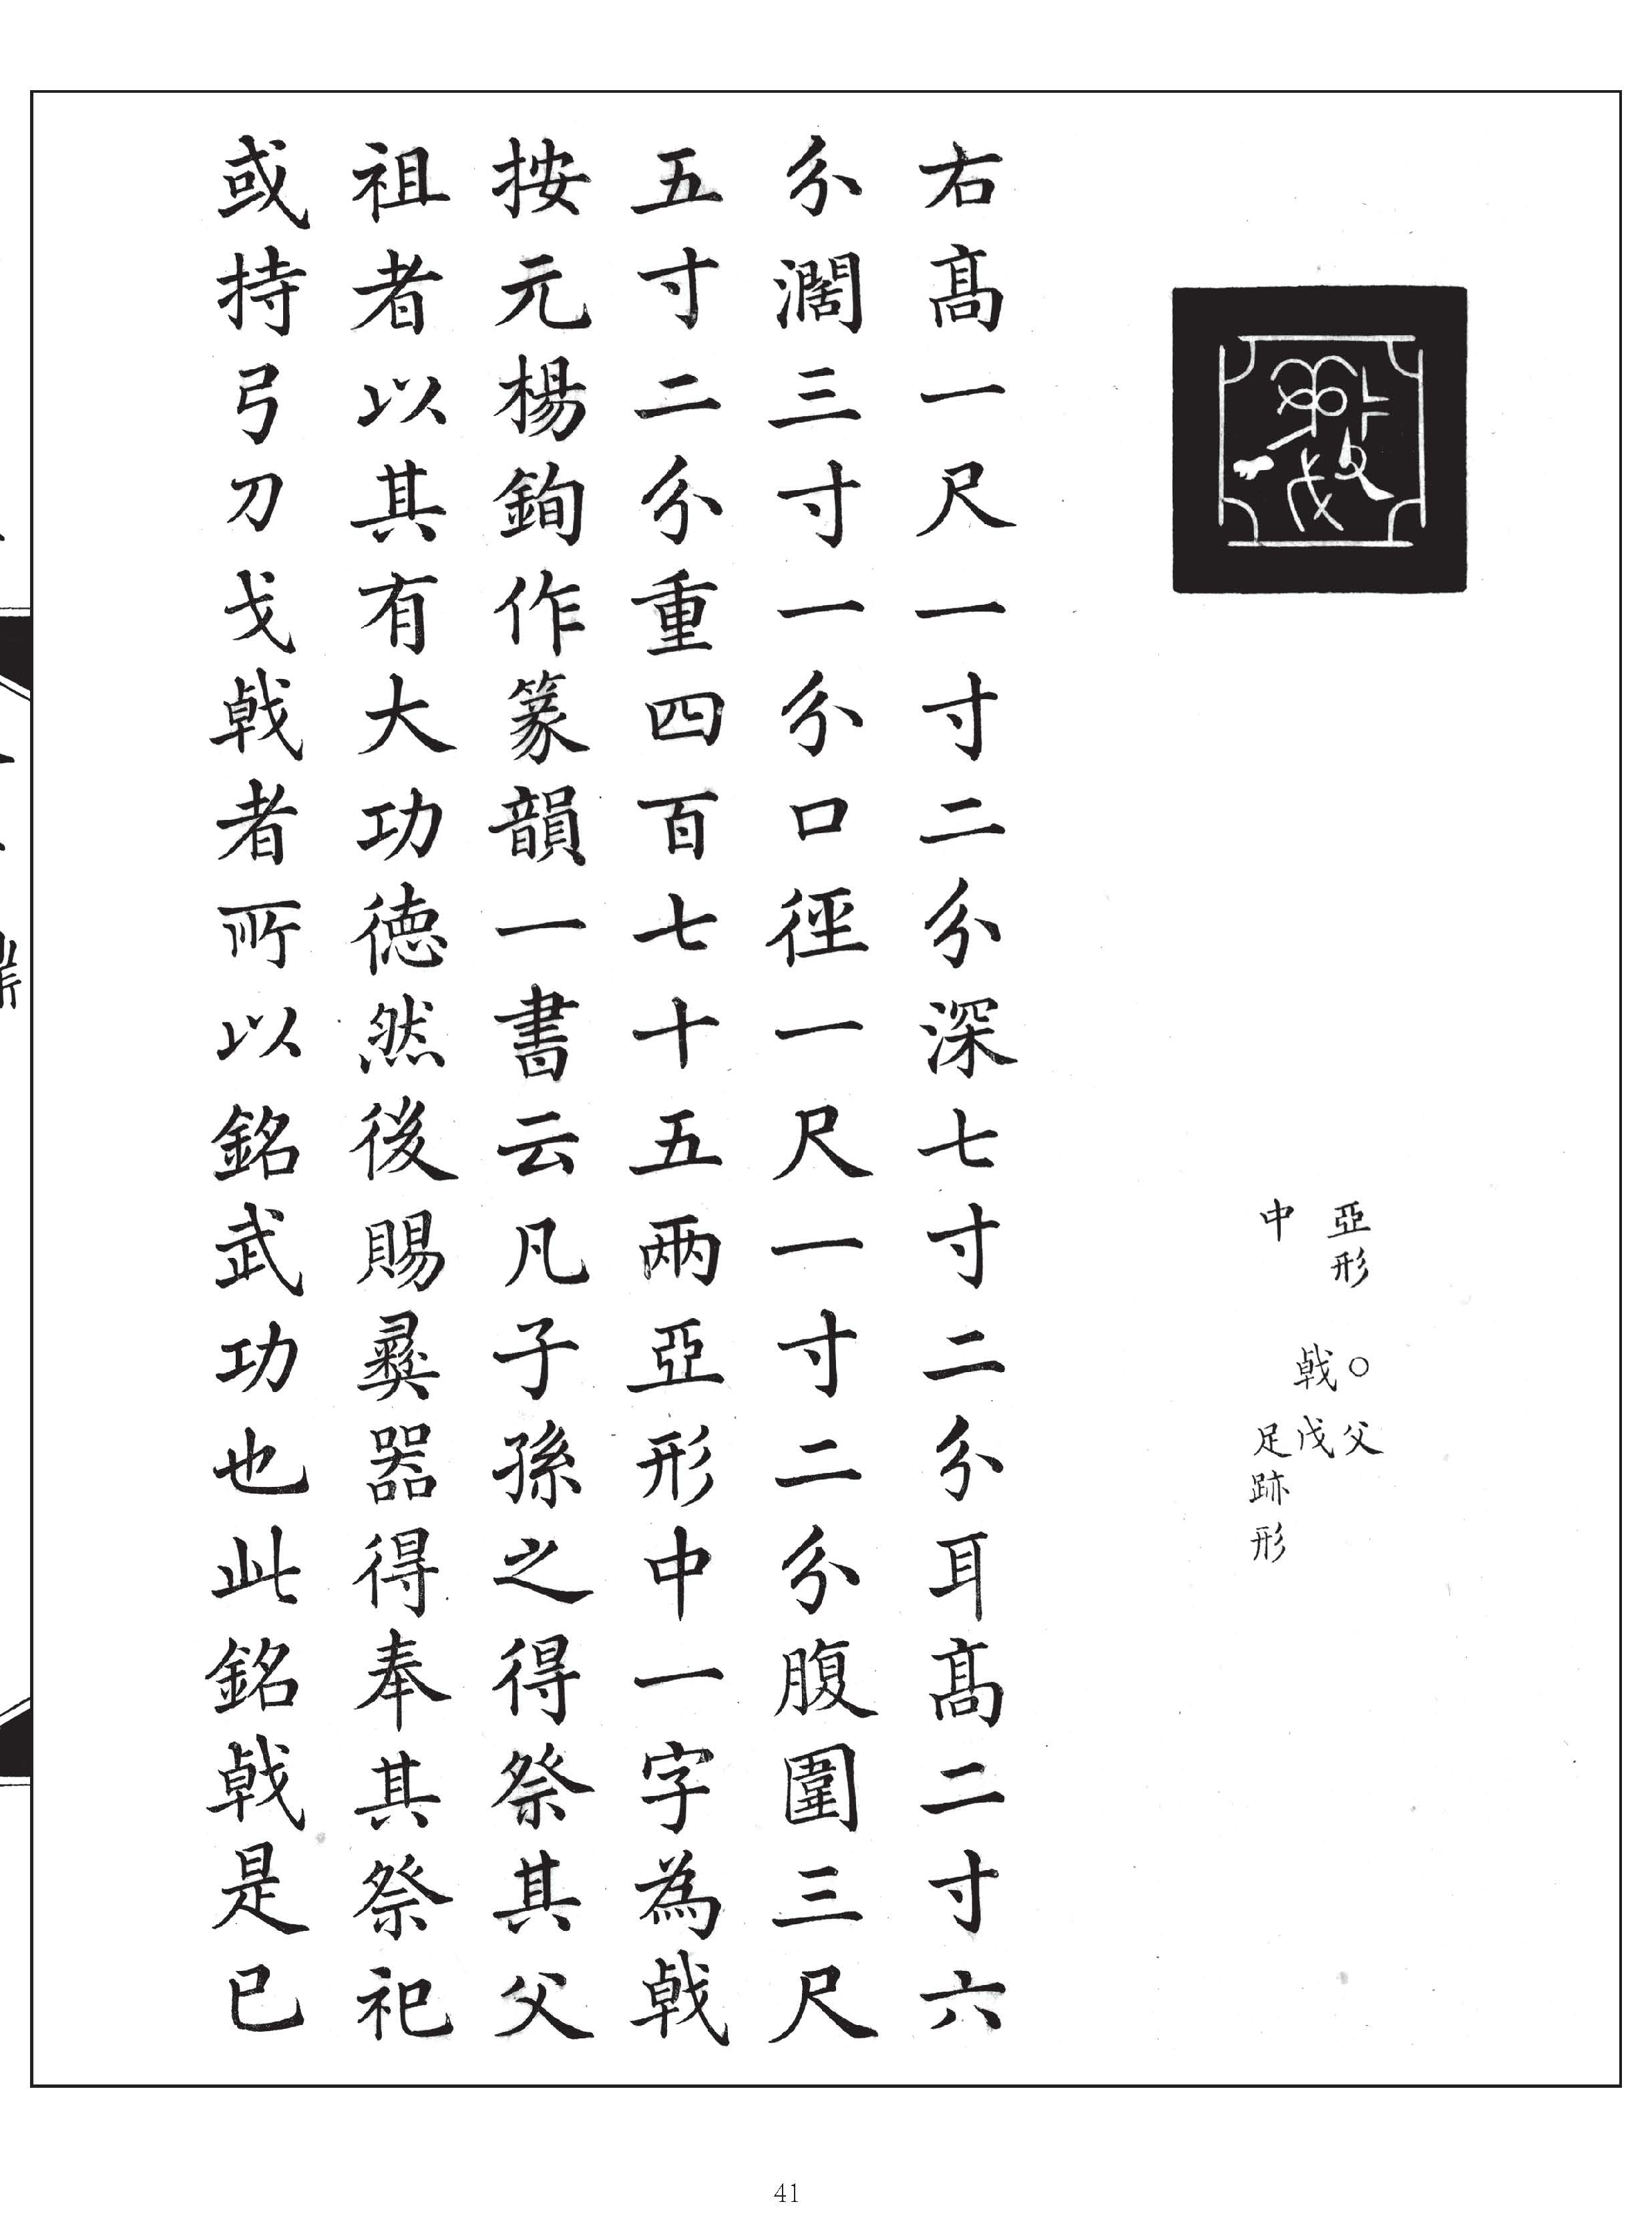 亞形
中
○父
戟戊
足跡形
右髙一尺一寸二分深七寸二分耳髙二寸六
分濶三寸一分口徑一尺一寸二分腹圍三尺
五寸二分重四百七十五兩亞形中一字為戟
按元楊鉤作篆韻一書云凡子孫之得祭其父
祖者以其有大功德然後賜彞器得奉其祭祀
或持弓刀戈戟者所以銘武功也此銘戟是已
41